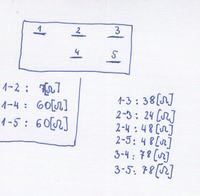 1 2 3
4 5
1-2 : [Ω]
1-4 : 60[Ω]
1-5 : 60[Ω]
1-3 : 38[Ω]
2-3 : 24[Ω]
2-4 : 48[Ω]
2-5 : 48[Ω]
3-4 : 78[Ω]
3-5 : 78[Ω]